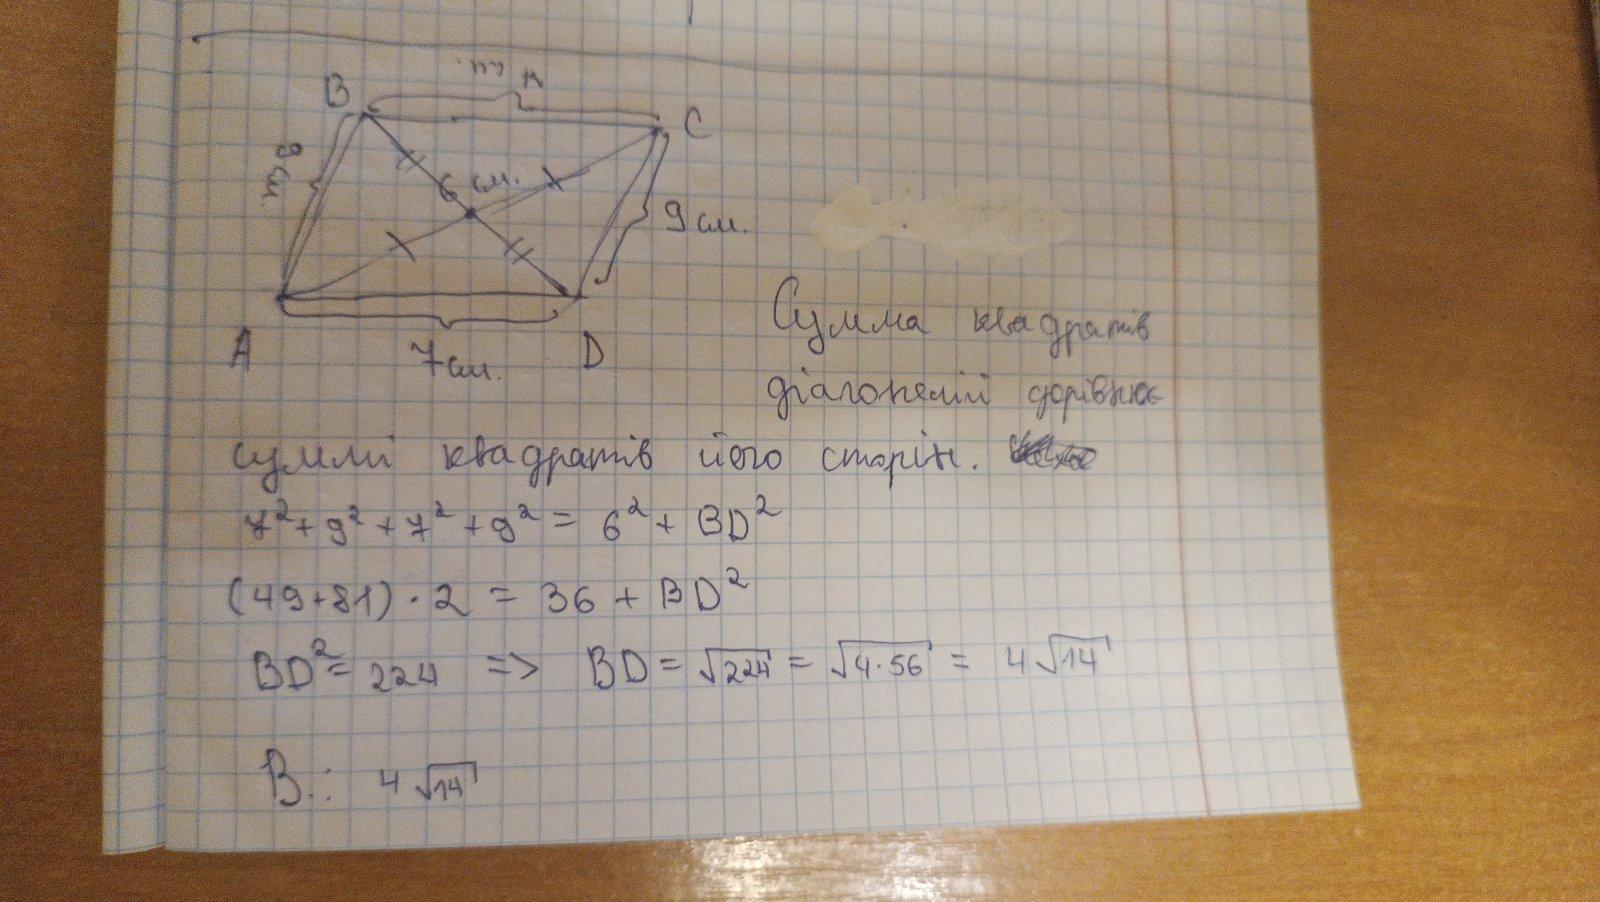 7 см.
B
C
9 см.
6 см.
9 см.
A
7 см.
D
Сумма квадратів
діагоналій дорівнює
суммі квадратів його сторін.
7² + 9² + 7² + 9² = 6² + BD²
(49+81) · 2 = 36 + BD²
BD² = 224 => BD = √224 = √4·56 = 4√14
В.: 4√14